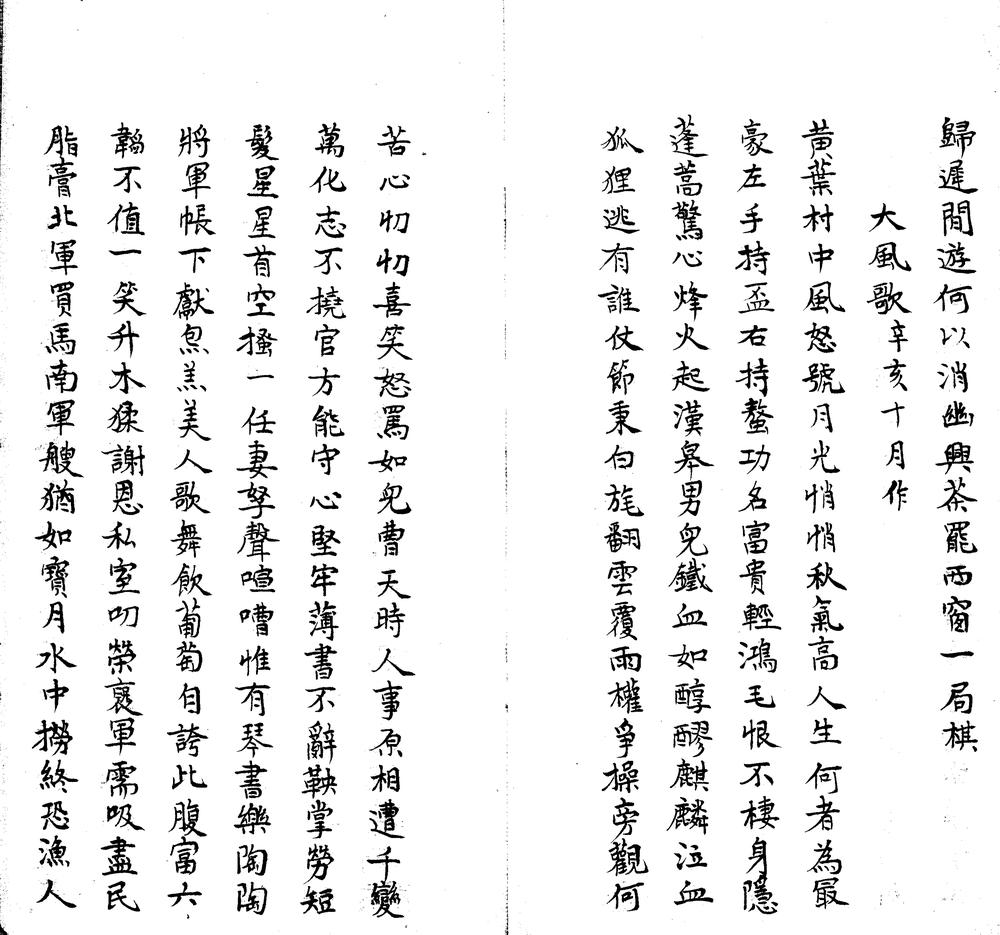 歸遲閒遊何以消幽興茶罷西窗一局棋
大風歌辛亥十月作
黄葉村中風怒號月光悄悄秋氣高人生何者為最
豪左手持盃右持螯功名富貴輕鴻毛恨不棲身隱
蓬蒿驚心烽火起漢皋男兒鐵血如醇醪麒麟泣血
狐狸逃有誰仗節秉白旄翻雲覆雨權爭操旁觀何
苦心忉忉喜笑怒罵如兒曹天時人事原相遭千變
萬化志不撓官方能守心堅牢薄書不辭鞅掌勞短
髮星星首空搔一任妻孥聲喧嘈惟有琴書樂陶陶
將軍帳下獻炰羔美人歌舞飲葡萄自誇此腹富六
韜不值一笑升木猱謝恩私室叨榮褒軍需吸盡民
脂膏北軍買馬南軍艘猶如寶月水中撈終恐漁人